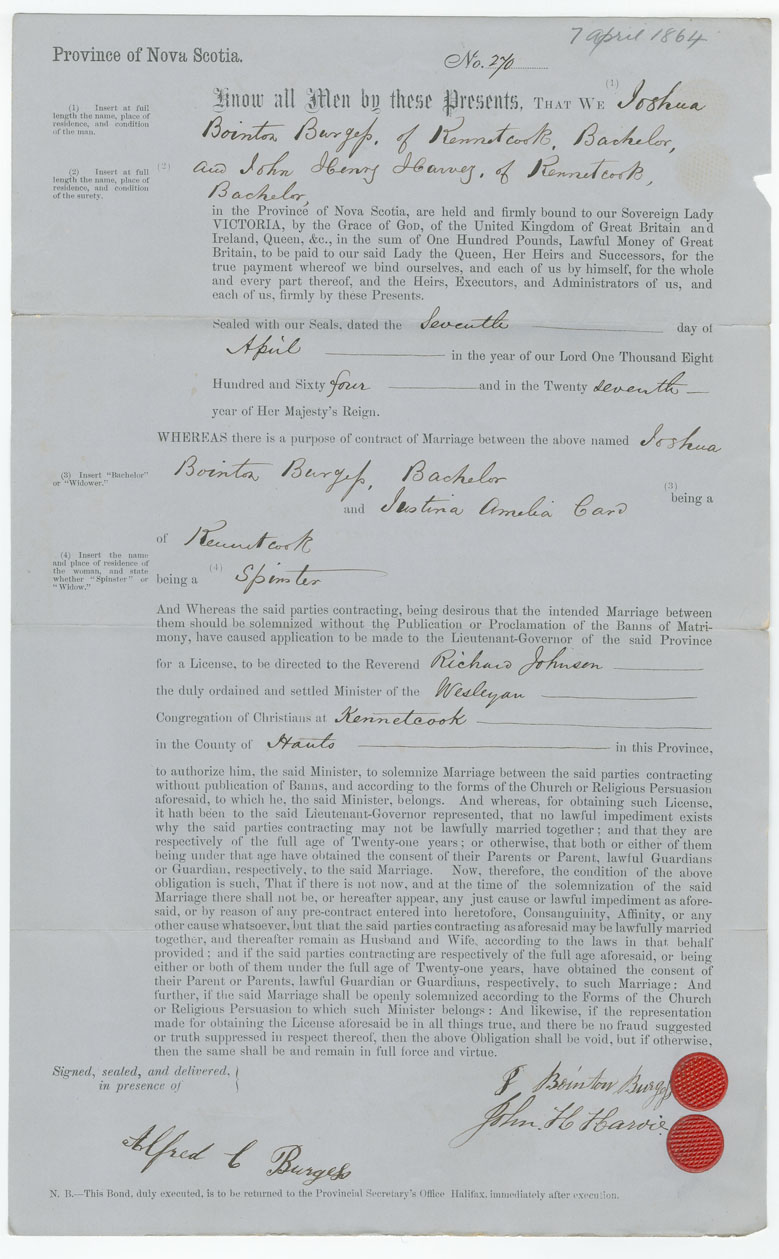 7 april 1864
Province of Nova Scotia.
No. 270
(1) Insert at full
length the name, place of
residence, and condition
of the man.
Know all Men by these Presents, THAT WE (1) Joshua
Bointon Burgess, of Kennetcook, Bachelor,
(2) Insert at full
length the name, place of
residence, and condition
of the surety.
(2) and John Henry Harvey, of Kennetcook,
Bachelor,
in the Province of Nova Scotia, are held and firmly bound to our Sovereign Lady
VICTORIA, by the Grace of GOD, of the United Kingdom of Great Britain and
Ireland, Queen, &c., in the sum of One Hundred Pounds, Lawful Money of Great
Britain, to be paid to our said Lady the Queen, Her Heirs and Successors, for the
true payment whereof we bind ourselves, and each of us by himself, for the whole
and every part thereof, and the Heirs, Executors, and Administrators of us, and
each of us, firmly by these Presents.
Sealed with our Seals, dated the Seventh day of
April in the year of our Lord One Thousand Eight
Hundred and Sixty four and in the Twenty seventh
year of Her Majesty's Reign.
WHEREAS there is a purpose of contract of Marriage between the above named Joshua
(3) Insert "Bachelor"
or "Widower."
Bointon Burgess, Bachelor
(3) being a
and Justina Amelia Card
of Kennetcook
(4) Insert the name
and place of residence of
the woman, and state
whether "Spinster" or
"Widow."
being a (4) Spinster
And Whereas the said parties contracting, being desirous that the intended Marriage between
them should be solemnized without the Publication or Proclamation of the Banns of Matri-
mony, have caused application to be made to the Lieutenant-Governor of the said Province
for a License, to be directed to the Reverend Richard Johnson
the duly ordained and settled Minister of the Wesleyan
Congregation of Christians at Kennetcook
in the County of Hants in this Province,
to authorize him, the said Minister, to solemnize Marriage between the said parties contracting
without publication of Banns, and according to the forms of the Church or Religious Persuasion
aforesaid, to which he, the said Minister, belongs. And whereas, for obtaining such License,
it hath been to the said Lieutenant-Governor represented, that no lawful impediment exists
why the said parties contracting may not be lawfully married together; and that they are
respectively of the full age of Twenty-one years; or otherwise, that both or either of them
being under that age have obtained the consent of their Parents or Parent, lawful Guardians
or Guardian, respectively, to the said Marriage. Now, therefore, the condition of the above
obligation is such, That if there is not now, and at the time of the solemnization of the said
Marriage there shall not be, or hereafter appear, any just cause or lawful impediment as afore-
said, or by reason of any pre-contract entered into heretofore, Consanguinity, Affinity, or any
other cause whatsoever, but that the said parties contracting as aforesaid may be lawfully married
together, and thereafter remain as Husband and Wife, according to the laws in that behalf
provided; and if the said parties contracting are respectively of the full age aforesaid, or being
either or both of them under the full age of Twenty-one years, have obtained the consent of
their Parent or Parents, lawful Guardian or Guardians, respectively, to such Marriage: And
further, if the said Marriage shall be openly solemnized according to the Forms of the Church
or Religious Persuasion to which such Minister belongs: And likewise, if the representation
made for obtaining the License aforesaid be in all things true, and there be no fraud suggested
or truth suppressed in respect thereof, then the above Obligation shall be void, but if otherwise,
then the same shall be and remain in full force and virtue.
Signed, sealed, and delivered,
in presence of
J Bointon Burgess
John. H Harvie
Alfred C Burgess
N. B.—This Bond, duly executed, is to be returned to the Provincial Secretary's Office Halifax, immediately after execution.